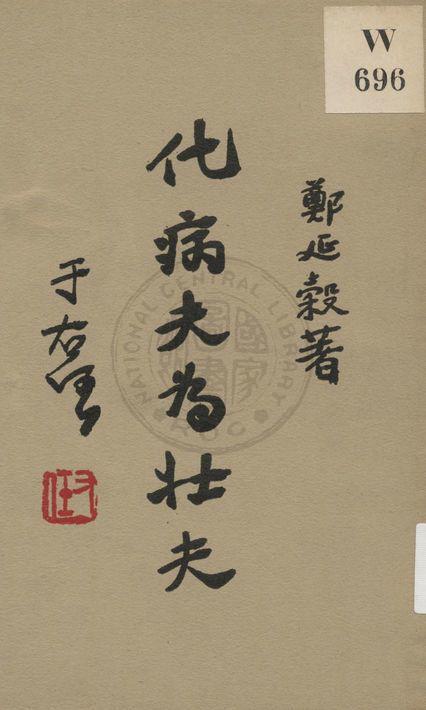 W
696
鄭延穀著
化病夫為壯夫
于右任
NATIONAL CENTRAL LIBRARY
ROC
國家圖書館
右任